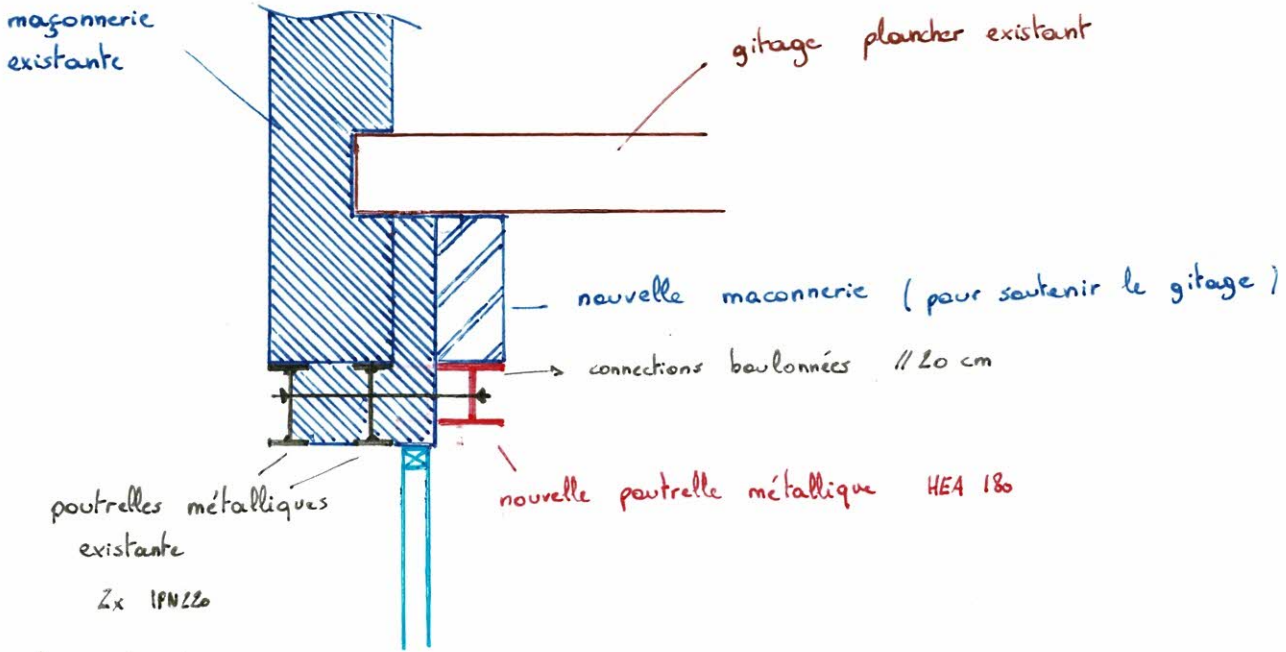 maçonnerie
existante
gitage plancher existant
nouvelle maconnerie (pour soutenir le gitage)
connections boulonnées // 20 cm
nouvelle poutrelle métallique HEA 180
poutrelles métalliques
existante
2x IPN220